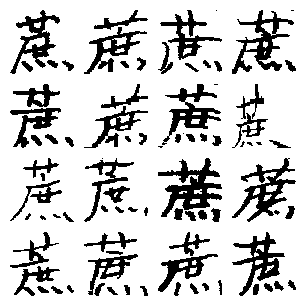 蔗蔗蔗蔗
蔗蔗蔗蔗
蔗蔗蔗蔗
蔗蔗蔗蔗